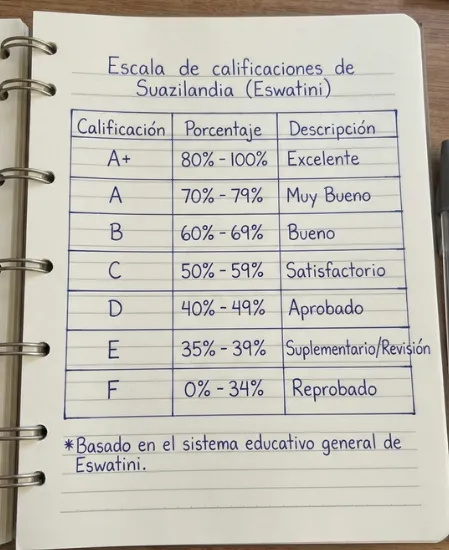 Escala de calificaciones de
Suazilandia (Eswatini)
Calificación Porcentaje Descripción
A+ 80% - 100% Excelente
A 70% - 79% Muy Bueno
B 60% - 69% Bueno
C 50% - 59% Satisfactorio
D 40% - 49% Aprobado
E 35% - 39% Suplementario/Revisión
F 0% - 34% Reprobado
*Basado en el sistema educativo general de
Eswatini.